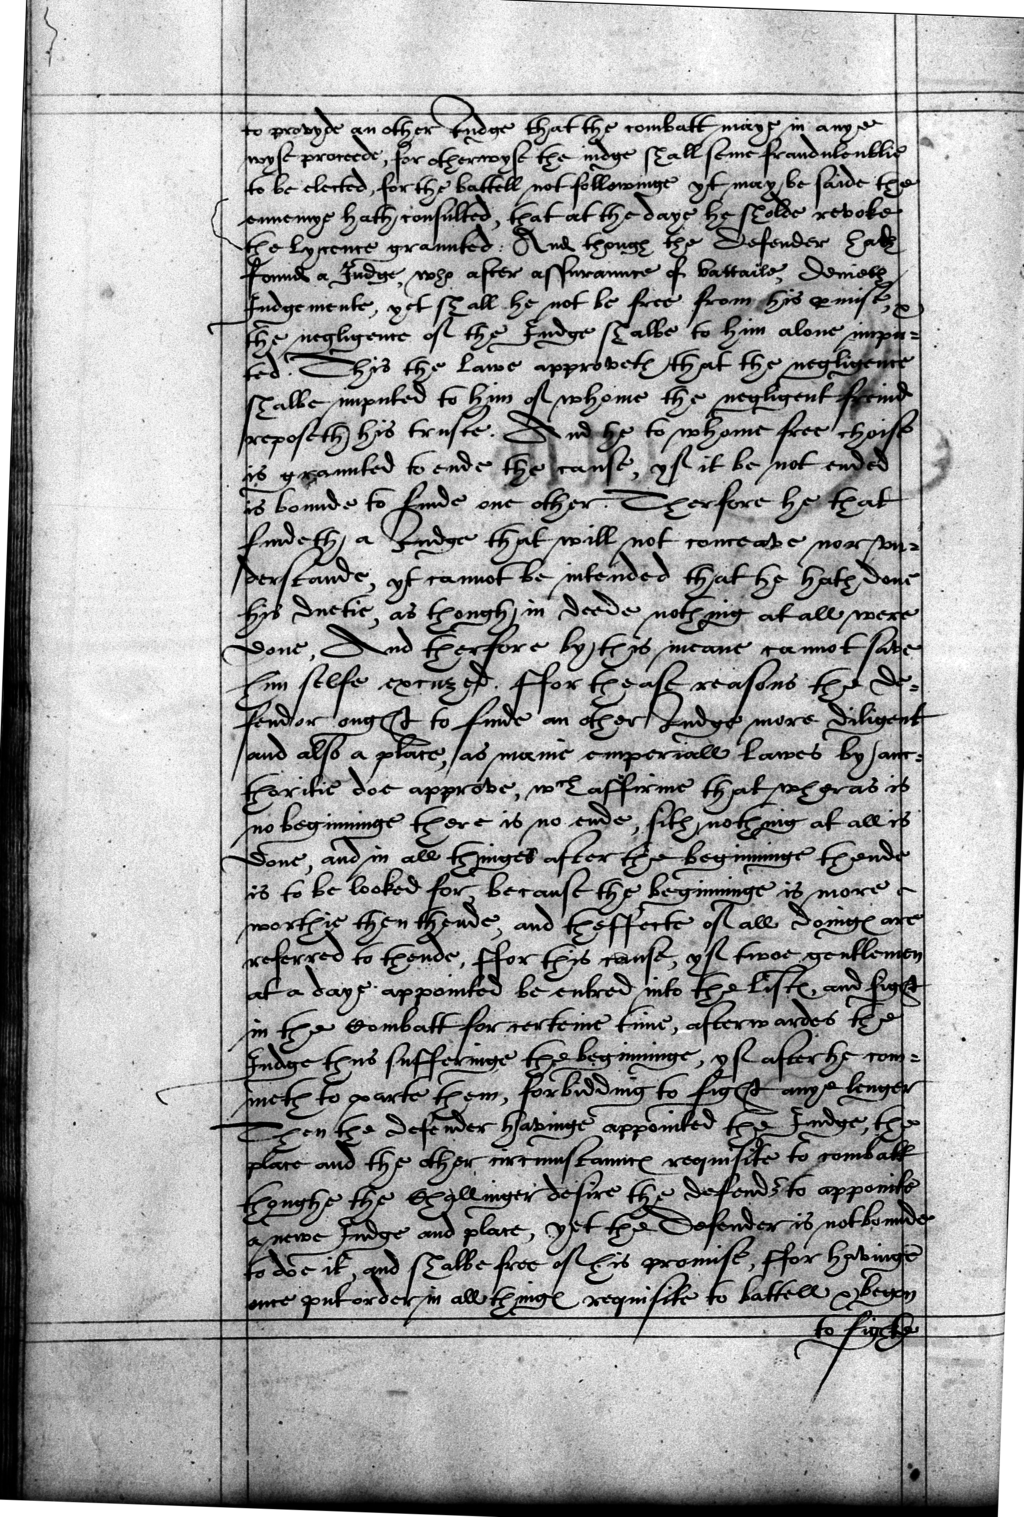 to provyde an other Iudge that the combatt maye in anye
wyse proceede, for otherwyse the iudge shall seme fraudulentlie
to be elected, for the battell not followinge yt may be saide the
ennemye hath consulted, that at the daye he sholde revoke
the Lycence graunted: And though the Defender hath
founde a Iudge, who after assuraunce of battaile, denieth
Iudgemente, yet shall he not be free from his pmise, &
the negligence of the Iudge shalbe to him alone impu-
ted. This the Lawe approveth that the negligence
shalbe imputed to him of whome the negligent freind
reposeth his truste. And he to whome free choise
is graunted to ende the cause, yf it be not ended
is bounde to finde one other. Therfore he that
findeth a Iudge that will not conceave nor vn-
derstande, yt cannot be intended that he hath done
his duetie, as though in deede nothing at all were
done, And therfore by this meane cannot save
him selfe excuzed. ffor thease reasons the de-
fendor ought to finde an other Iudge more diligent
and also a place, as manie emperiall Lawes by auc-
thoritie doe approve, wch affirme that wheras is
no beginninge there is no ende, sith nothing at all is
done, and in all thinges after the beginninge thende
is to be looked for, because the beginninge is more
worthie then thende, and theffecte of all doinges are
referred to thende, ffor this cause, yf twoe gentlemen
at a daye appointed be entred into the Listes, and fight
in the Combatt for certeine time, afterwardes the
Iudge thus sufferinge the beginninge, yf after he com-
meth to parte them, forbidding to fight anye lenger
Then the defender havinge appointed the Iudge, the
place and the other circumstaunces requisite to combatt
thoughe the Challinger desire the defendr to appointe
a newe Iudge and place, yet the Defender is not bounde
to doe it, and shalbe free of his promise, ffor havinge
once put order in all thinges requisite to battell & begon
to fighte